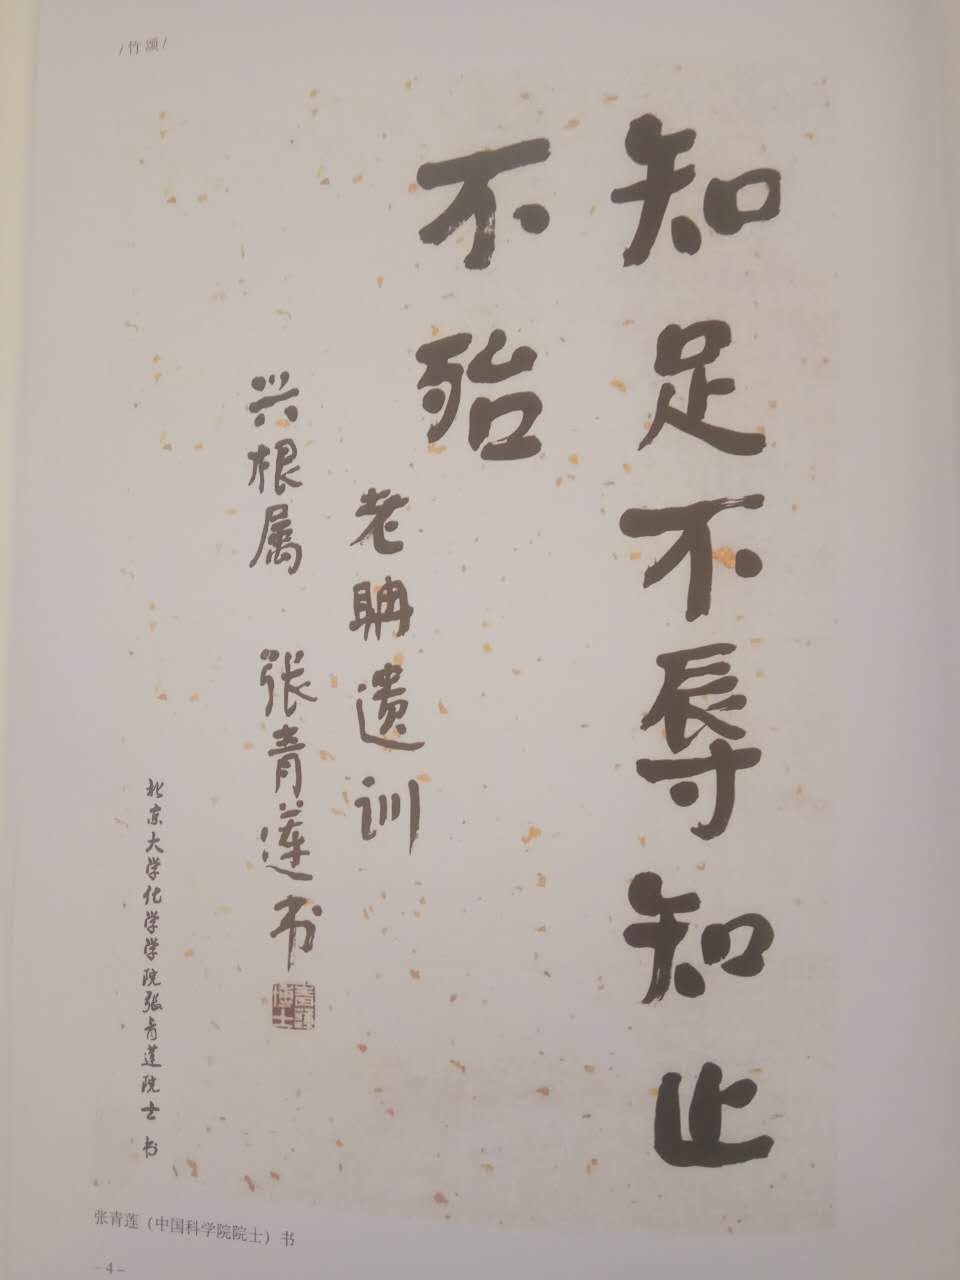 /竹颂/
知足不辱知止
不殆
老聃遗训
兴根属 张青莲书
青莲
博士
北京大学化学学院张青莲院士书
张青莲（中国科学院院士）书
-4-